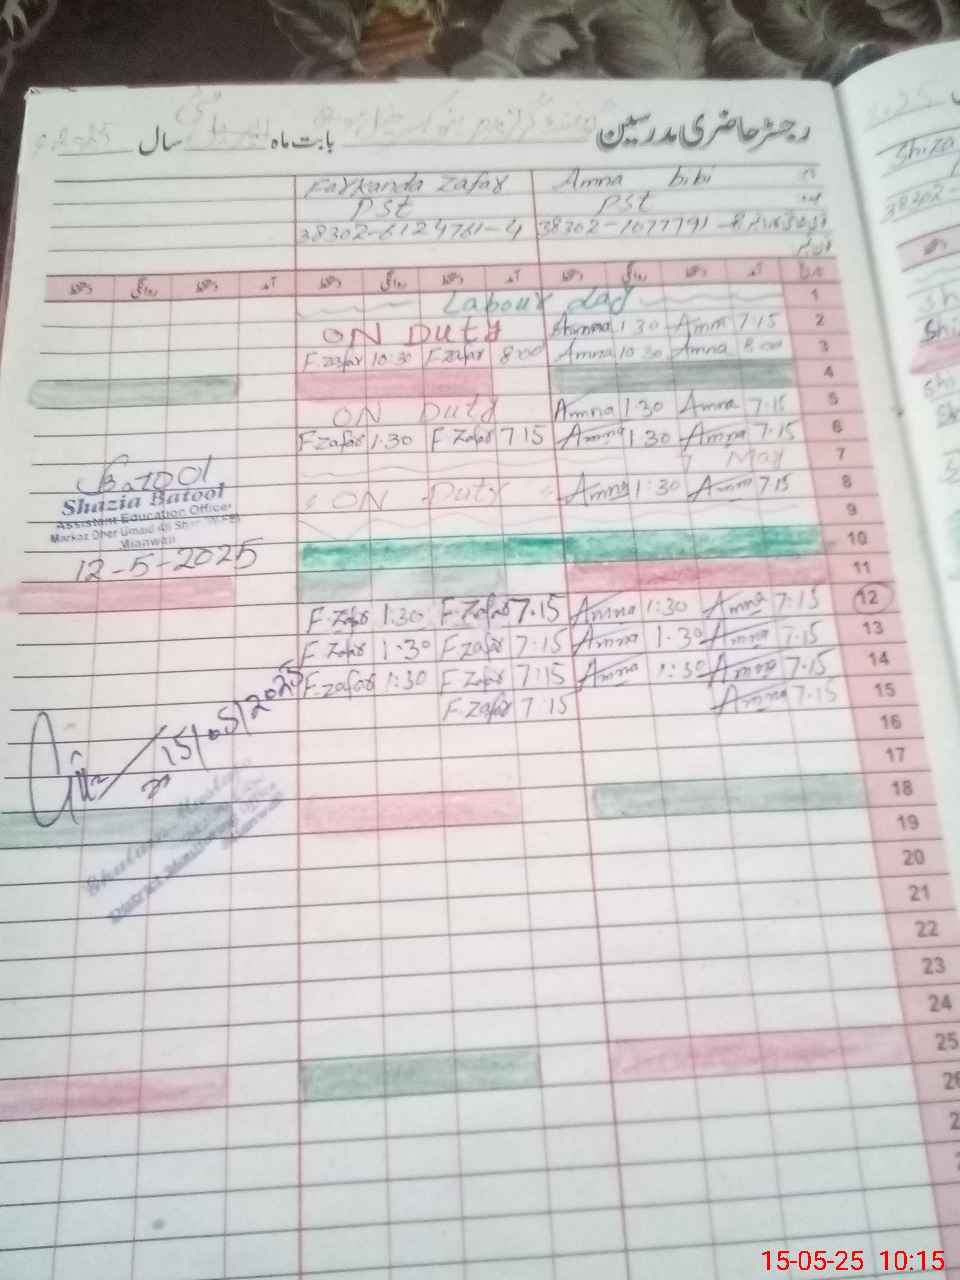 رجسٹر حاضری مدرسین بابت ماہ سال
Farkanda Zafar Amna bibi
PST PST
38302-6124761-4 38302-1077791-8
دستخط روانگی دستخط آمد دستخط روانگی دستخط آمد دستخط روانگی دستخط آمد تاریخ
Labour Day 1
ON Duty Amna 1 30 Amna 7 15 2
F.zafar 10:30 F.zafar 8:00 Amna 10 30 Amna 8:00 3
4
ON Duty Amna 1.30 Amna 7.15 5
F.zafar 1.30 F.Zafar 7 15 Amna 1 30 Amna 7.15 6
7 May 7
ON Duty Amna 1:30 Amna 7.15 8
9
10
11
Batool
Shazia Batool
Assistant Education Officer
Markaz Dher Umaid Ali Shah
Mianwali
12-5-2025
F.Zafar 1:30 F.Zafar 7.15 Amna 1:30 Amna 7:15 12
F Zafar 1.30 F zafar 7:15 Amna 1.30 Amna 7.15 13
F.zafar 1:30 F.Zafar 7:15 Amna 1:30 Amna 7.15 14
F.Zafar 7:15 Amna 7.15 15
15/05/2025
16
17
18
19
20
21
22
23
24
25
26
Shiza
38302-
15-05-25 10:15